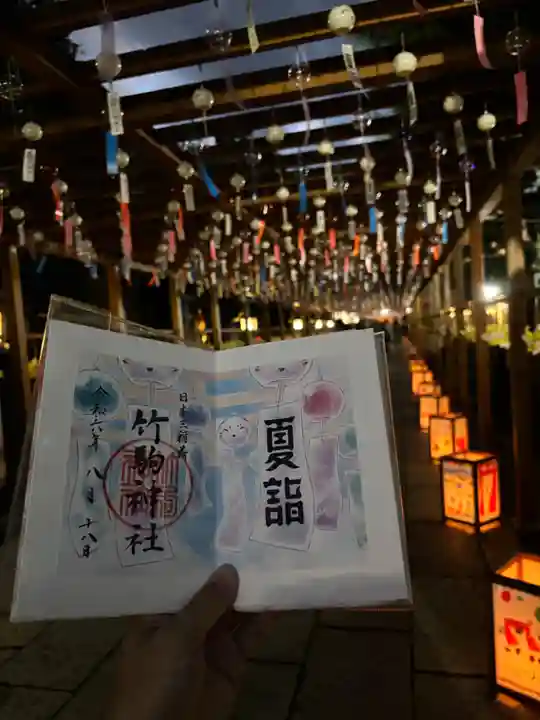 夏詣
日本三稲荷
竹駒神社
令和六年
八月
十八日